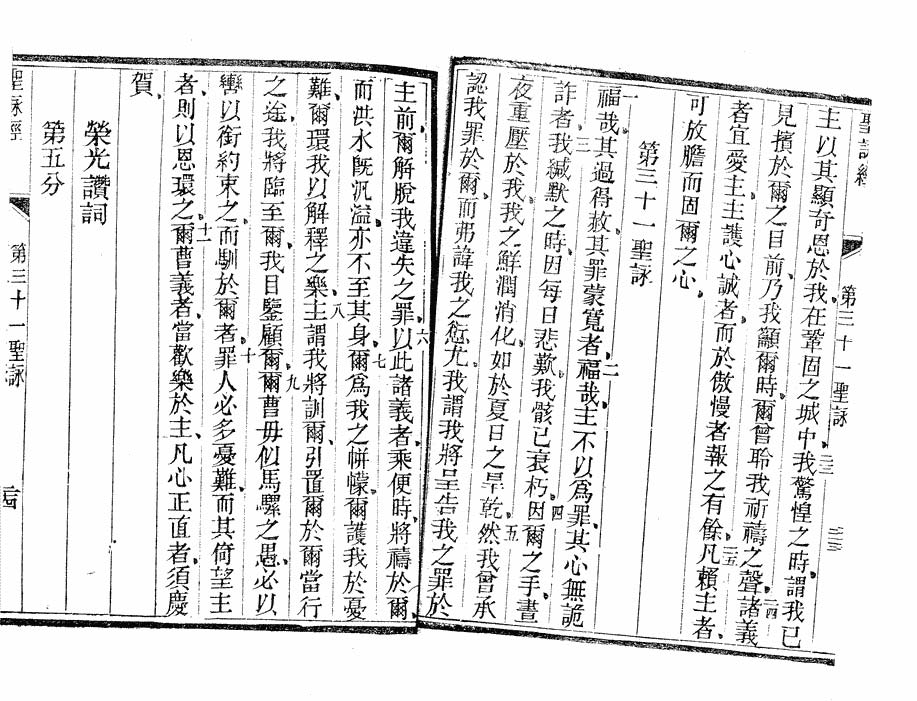 聖詠經
第三十一聖詠
主以其顯奇恩於我在鞏固之城中我驚惶之時謂我已
見擯於爾之目前乃我籲爾時爾曾聆我祈禱之聲諸義
者宜愛主主護心誠者而於傲慢者報之有餘凡賴主者
可放膽而固爾之心
第三十一聖詠
福哉其過得赦其罪蒙寬者福哉主不以爲罪其心無詭
詐者我緘默之時因每日悲歎我骸已衰朽因爾之手晝
夜重壓於我我之鮮潤消化如於夏日之旱乾然我曾承
認我罪於爾而弗諱我之愆尤我謂我將呈告我之罪於
主前爾解脫我違失之罪以此諸義者乘便時將禱於爾
而洪水旣汎溢亦不至其身爾爲我之帡幪爾護我於憂
難爾環我以解釋之樂主謂我將訓爾引置爾於爾當行
之途我將臨至爾我目鑒顧爾爾曹毋似馬騾之愚必以
轡以銜約束之而馴於爾者罪人必多憂難而其倚望主
者則以恩環之爾曹義者當歡樂於主凡心正直者須慶
賀
榮光讚詞
第五分
聖詠經
第三十一聖詠